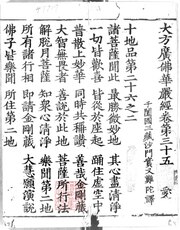 大方廣佛華嚴經卷第三十五 愛
于闐國三藏沙門實叉難陀譯
十地品第二十六之二
諸菩薩聞此 最勝微妙地 其心盡清淨
一切皆歡喜 皆從於座起 踊住虛空中
普散上妙華 同時共稱讚 善哉金剛藏
大智無畏者 善說於此地 菩薩所行法
解脫月菩薩 知衆心清淨 樂聞第二地
所有諸行相 即請金剛藏 大慧願演說
佛子皆樂聞 所住第二地